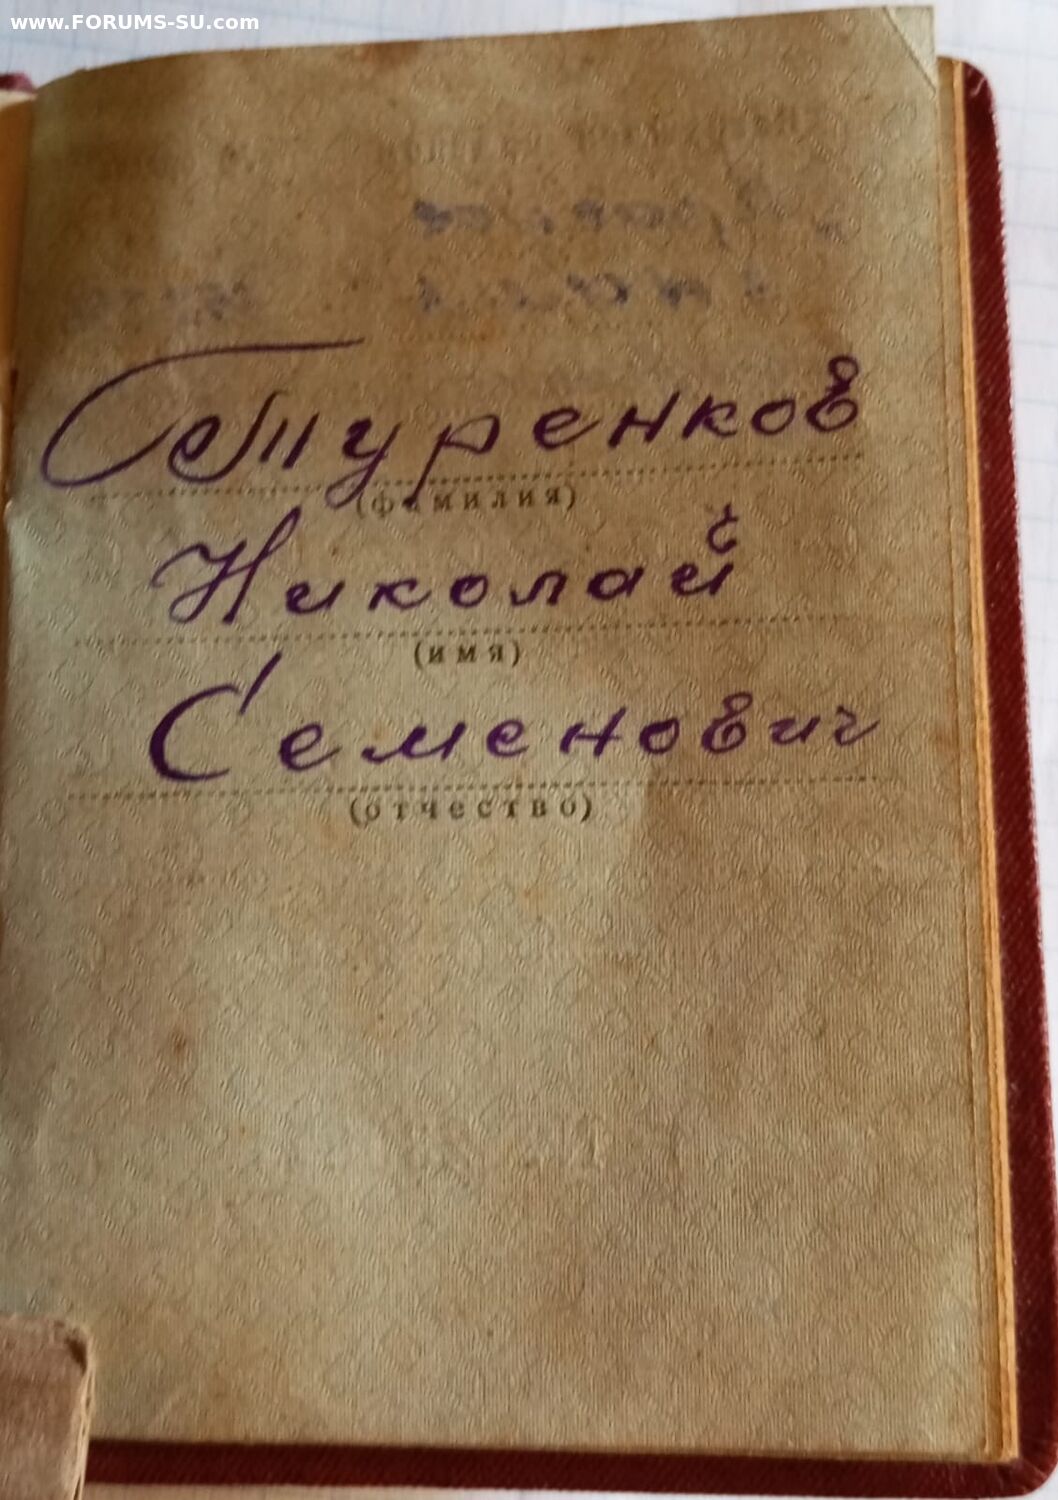 www.FORUMS-SU.com
Туренков
(фамилия)
Николай
(имя)
Семенович
(отчество)